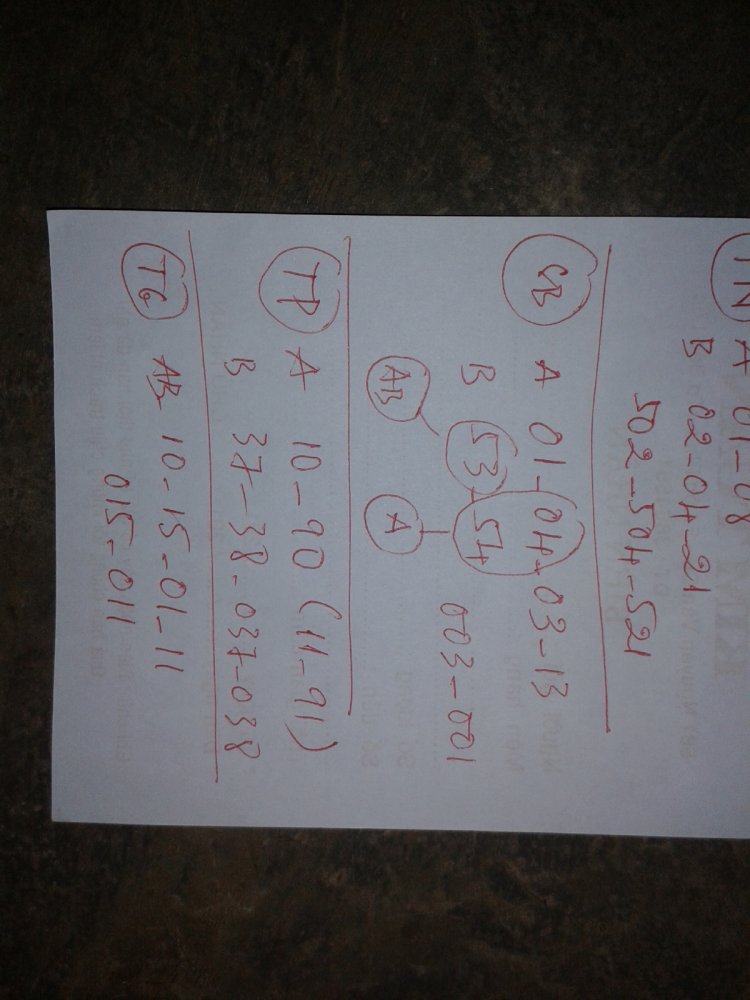 TN A 01-08
B 02-04-21
502-504-521
CB A 01-04-03-13
B 53-54 003-001
AB A
TP A 10-90 (11-91)
B 37-38-037-038
TG AB 10-15-01-11
015-011